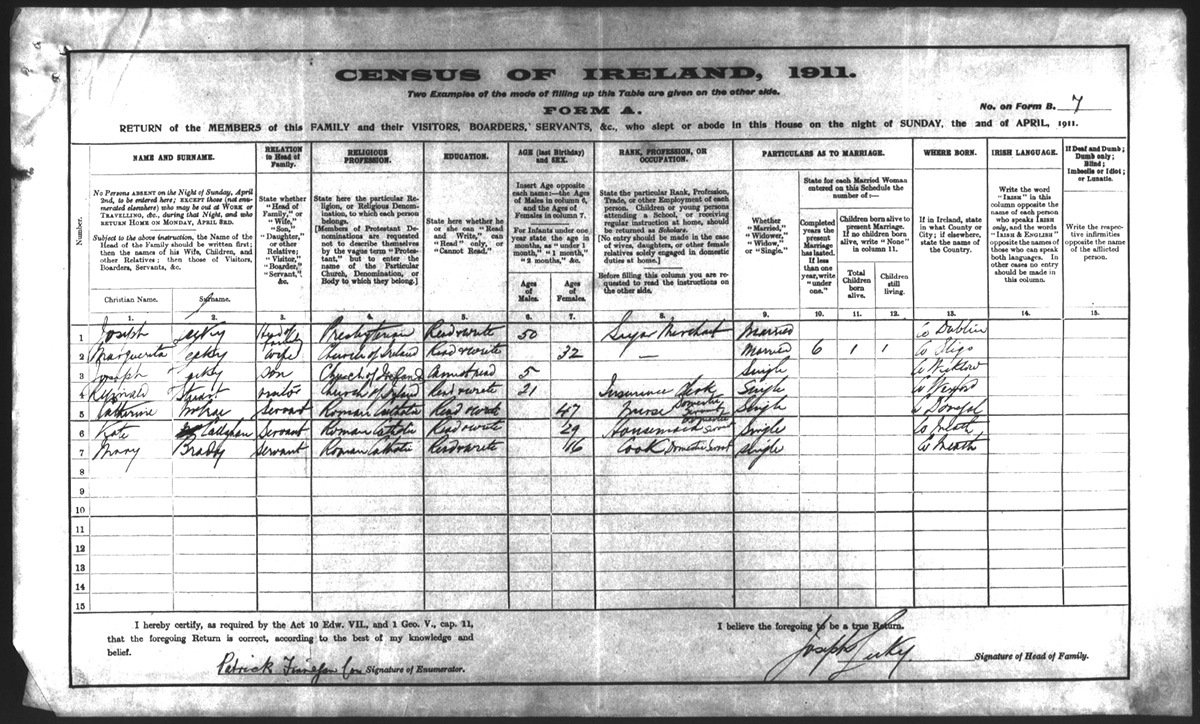 CENSUS OF IRELAND, 1911.
Two Examples of the mode of filling up this Table are given on the other side.
FORM A.
No. on Form B. 7
RETURN of the MEMBERS of this FAMILY and their VISITORS, BOARDERS, SERVANTS, &c., who slept or abode in this House on the night of SUNDAY, the 2nd of APRIL, 1911.
Number.
NAME AND SURNAME.
No Persons ABSENT on the Night of Sunday, April
2nd, to be entered here; EXCEPT those (not enu-
merated elsewhere) who may be out at WORK or
TRAVELLING, &c., during that Night, and who
RETURN HOME ON MONDAY, APRIL 3RD.
Subject to the above instruction, the Name of the
Head of the Family should be written first;
then the names of his Wife, Children, and
other Relatives; then those of Visitors,
Boarders, Servants, &c.
Christian Name.
Surname.
1.
2.
RELATION
to Head of
Family.
State whether
"Head of
Family," or
"Wife,"
"Son,"
"Daughter,"
or other
Relative,
"Visitor,"
"Boarder,"
"Servant,"
&c.
3.
RELIGIOUS
PROFESSION.
State here the particular Re-
ligion, or Religious Denom-
ination, to which each person
belongs.
[Members of Protestant De-
nominations are requested
not to describe themselves
by the vague term "Protes-
tant," but to enter the
name of the Particular
Church, Denomination, or
Body to which they belong.]
4.
EDUCATION.
State here whether he
or she can "Read
and Write," can
"Read" only, or
"Cannot Read."
5.
AGE (last Birthday)
and SEX.
Insert Age opposite
each name:—the Ages
of Males in column 6,
and the Ages of
Females in column 7.
For Infants under one
year state the age in
months, as "under 1
month," "1 month,"
"2 months," &c.
Ages
of
Males.
6.
Ages
of
Females.
7.
RANK, PROFESSION, OR
OCCUPATION.
State the particular Rank, Profession,
Trade, or other Employment of each
person. Children or young persons
attending a School, or receiving
regular instruction at home, should
be returned as Scholars.
[No entry should be made in the case
of wives, daughters, or other female
relatives solely engaged in domestic
duties at home.]
Before filling this column you are re-
quested to read the instructions on
the other side.
8.
PARTICULARS AS TO MARRIAGE.
Whether
"Married,"
"Widower,"
"Widow,"
or "Single."
9.
State for each Married Woman
entered on this Schedule the
number of:—
Completed
years the
present
Marriage
has lasted.
If less
than one
year, write
"under
one."
10.
Children born alive to
present Marriage.
If no children born
alive, write "None"
in column 11.
Total
Children
born
alive.
11.
Children
still
living.
12.
WHERE BORN.
If in Ireland, state
in what County or
City; if elsewhere,
state the name of
the Country.
13.
IRISH LANGUAGE.
Write the word
"IRISH" in this
column opposite the
name of each person
who speaks IRISH
only, and the words
"IRISH & ENGLISH"
opposite the names of
those who can speak
both languages. In
other cases no entry
should be made in
this column.
14.
If Deaf and Dumb;
Dumb only;
Blind;
Imbecile or Idiot;
or Lunatic.
Write the respec-
tive infirmities
opposite the name
of the afflicted
person.
15.
1 Joseph Lecky Head of Family Presbyterian Read & write 50 Sugar Merchant Married Co Dublin
2 Marguerita Lecky Wife Church of Ireland Read & write 32 — Married 6 1 1 Co Sligo
3 Joseph Lecky Son Church of Ireland Cannot read 5 Single Co Wicklow
4 Reginald Stuart Visitor Church of Ireland Read & write 21 Insurance Clerk Single Co Wexford
5 Catherine Servant Roman Catholic Read & write 47 Nurse Domestic Servant Single Co Donegal
6 Kate Callaghan Servant Roman Catholic Read & write 29 Housemaid Domestic Servant Single Co Meath
7 Mary Brady Servant Roman Catholic Read & write 16 Cook Domestic Servant Single Co Meath
8
9
10
11
12
13
14
15
I hereby certify, as required by the Act 10 Edw. VII., and 1 Geo. V., cap. 11,
that the foregoing Return is correct, according to the best of my knowledge and
belief.
Patrick Con Signature of Enumerator.
I believe the foregoing to be a true Return.
Joseph Lecky Signature of Head of Family.